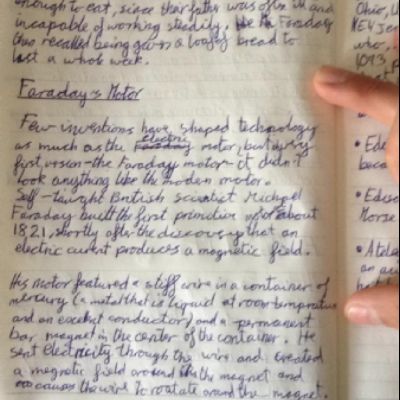 enough to eat, since their father was often ill and
incapable of working steadily. Faraday
also recalled being given a loaf of bread to
last a whole week.
Faraday's Motor
Few inventions have shaped technology
as much as the electric motor, but every
first vesion - the Faraday motor - it didn't
look anything like the modern motor.
Self-taught British scientist Michael
Faraday built the first primitive motor about
1821, shortly after the discovery that an
electric curent produces a magnetic field.
His motor featured a stiff wire in a container of
mercury (a metal that is liquid at room temprature
and an excelent conductor) and a permanent
bar magnet in the center of the container. He
sent electricity through the wire and created
a magnetic field around the magnet and
causes the wire to roatate around the magnet.
Ohio, U
who,
1093
• Ede
beca
• Ediso
Morse
an au